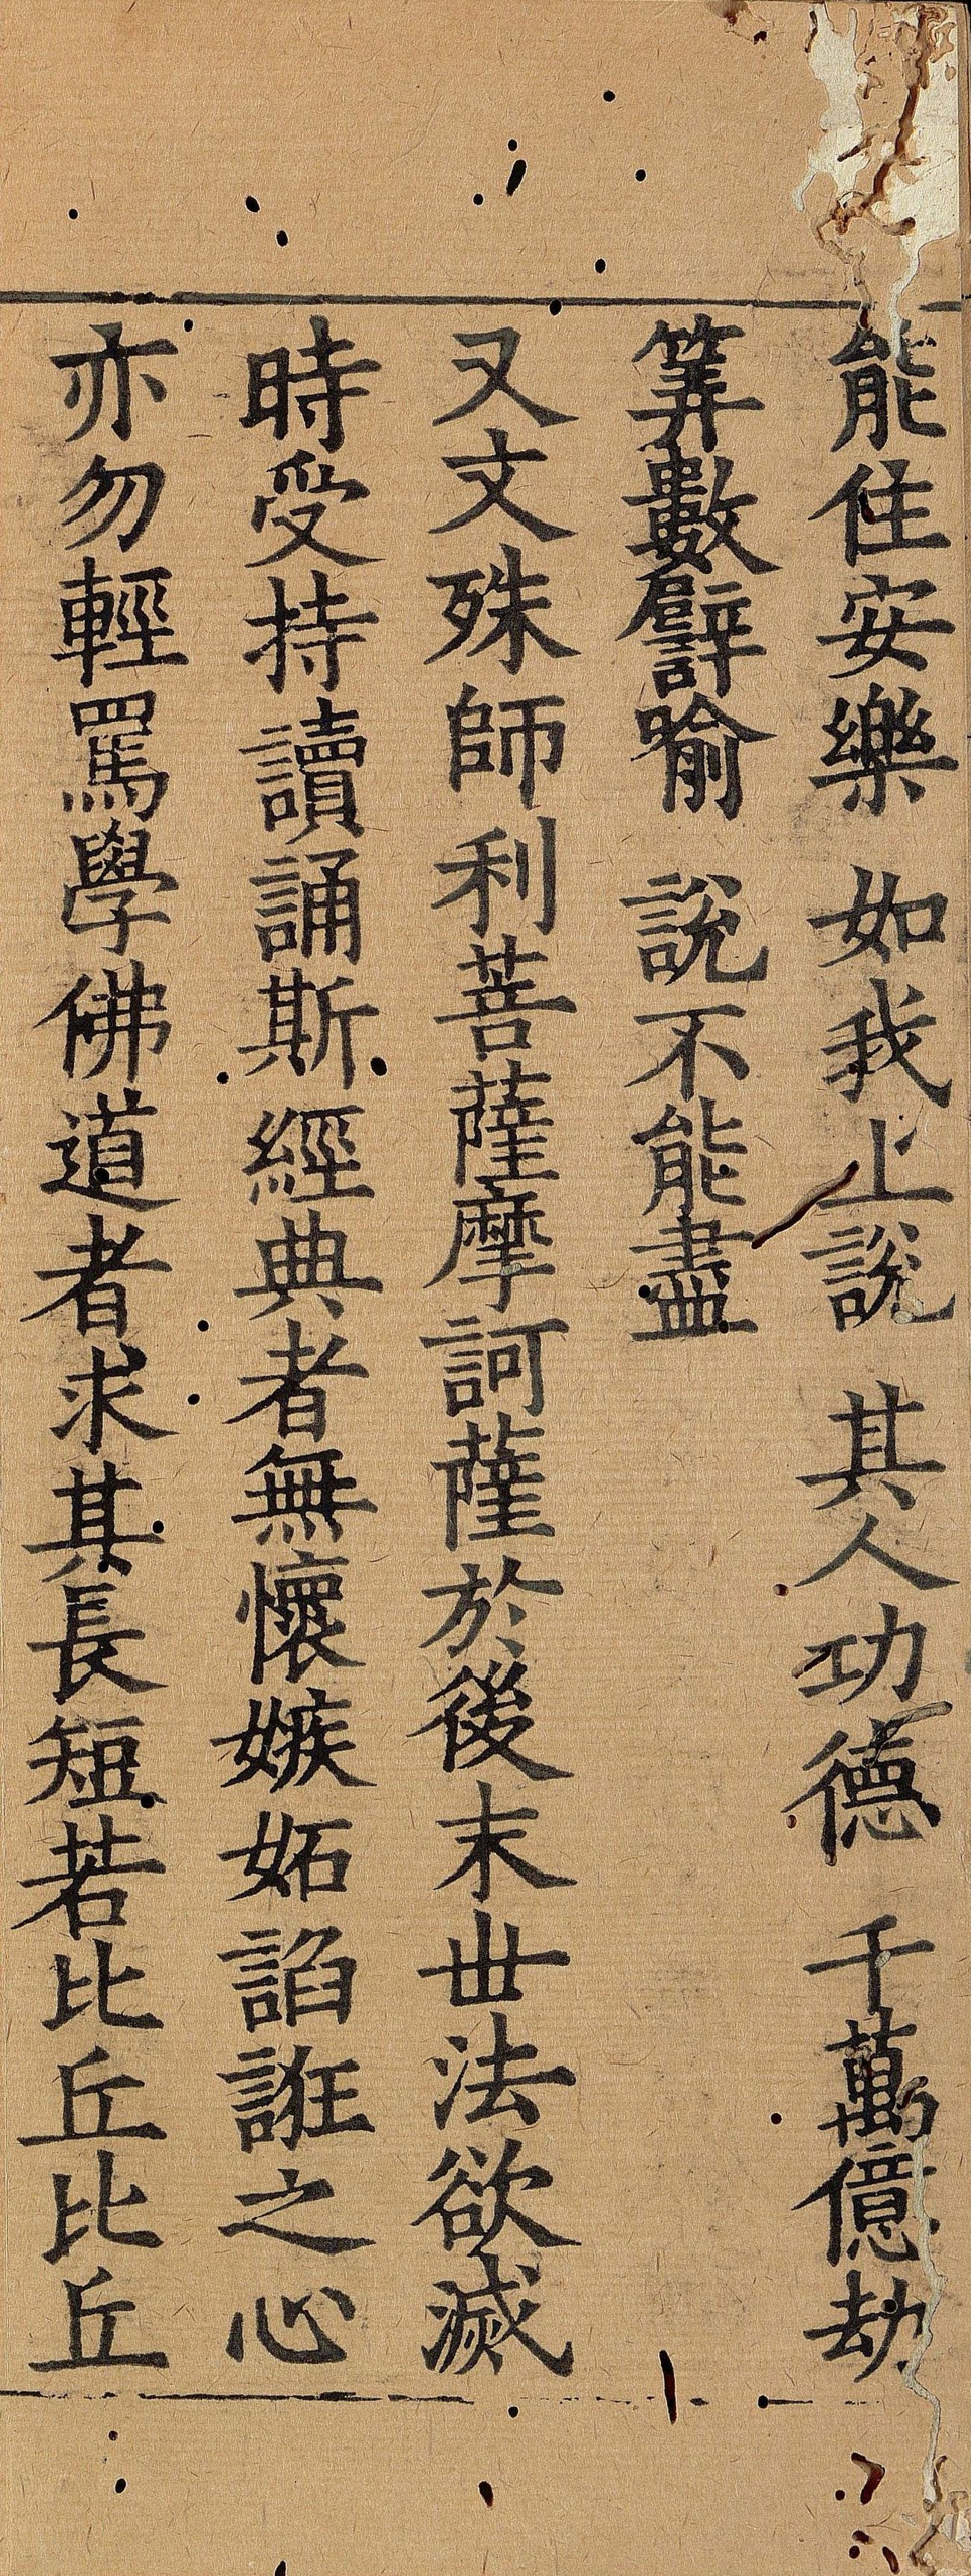 能住安樂　如我上説　其人功德　千萬億劫
筭數譬喻　説不能盡
又文殊師利菩薩摩訶薩於後末世法欲滅
時受持讀誦斯經典者無懷嫉妬諂誑之心
亦勿輕罵學佛道者求其長短若比丘比丘